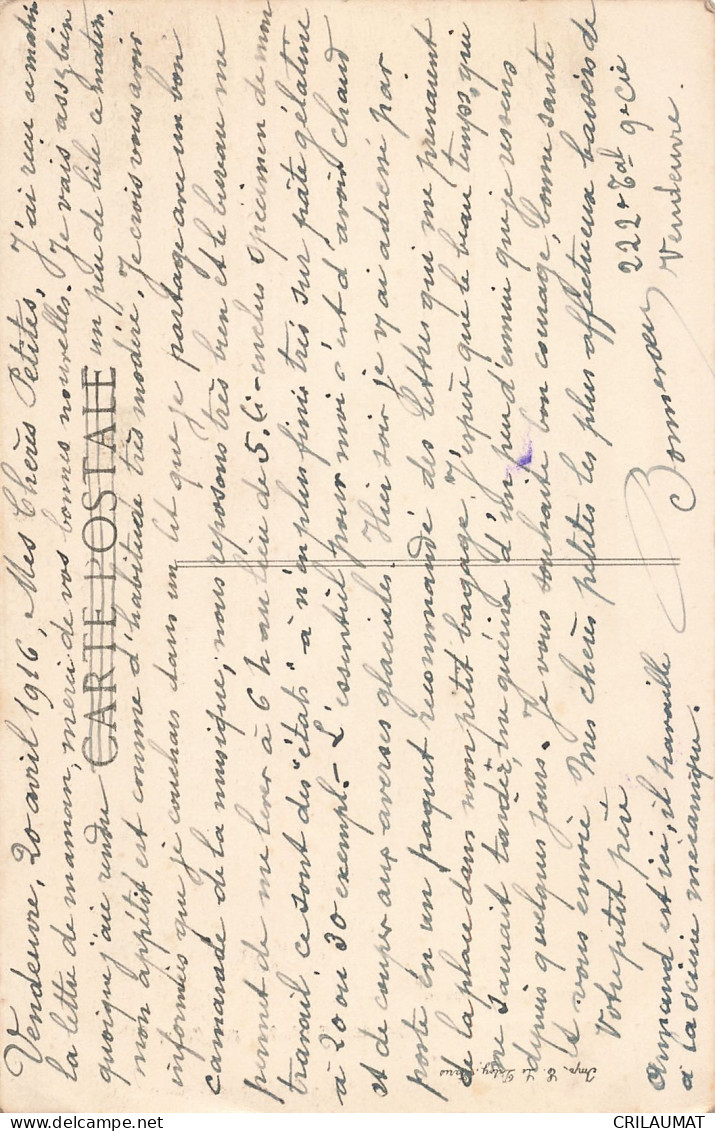 Vendeuvre, 20 avril 1916, Mes Chères Petites, J'ai reçu ce matin
la lettre de maman, merci de vos bonnes nouvelles. Je vais assez bien
quoique j'aie rendu un peu de bile ce matin,
CARTE POSTALE
mon appétit est comme d'habitude très modéré, Je crois vous avoir
informées que je couchais dans un lit que je partage avec un bon
camarade de la musique, nous reposons très bien et le bureau me
permet de me lever à 6 h au lieu de 5. Ci-inclus spécimen de mon
travail, ce sont des "états" à n'en plus finir tirés sur pâte gélatine
à 20 ou 30 exempl. - L'essentiel pour moi c'est d'avoir chaud
et de couper aux averses glaciales. Hier soir je v/ ai adressé par
poste en un paquet recommandé des lettres qui me prenaient
de la place dans mon petit bagage. J'espère que le beau temps, qui
ne saurait tarder, me guérira d'un peu d'ennui que je ressens
depuis quelques jours. Je vous souhaite bon courage, bonne santé
et vous envoie Mes chères petites les plus affectueux baisers de
Votre petit père
222e Tal 9e Cie
Bonnerœur Vendeuvre.
Armand est ici, il travaille
à la scierie mécanique.
Imp. E. Le Deley, Paris
CRILAUMAT